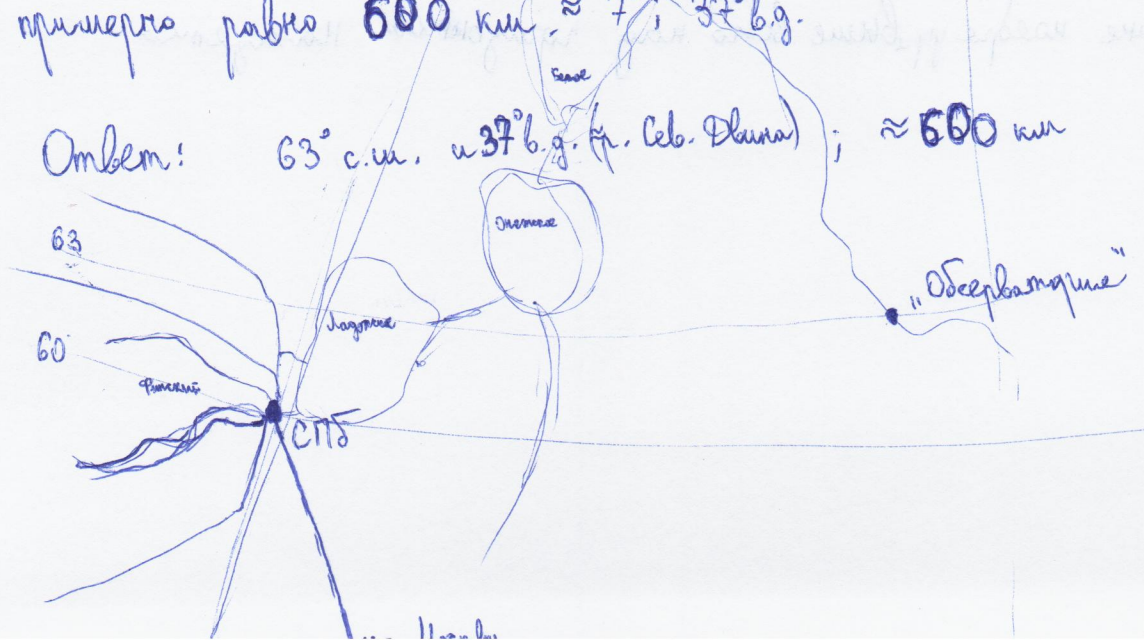 примерно равно 600 км ≈ 7°; 37° в.д.
Белое
Ответ: 63° с.ш. и 37° в.д. (р. Сев. Двина); ≈ 600 км
Онежское
63
"Обсерватория"
Ладожск
60°
Финский
СПб